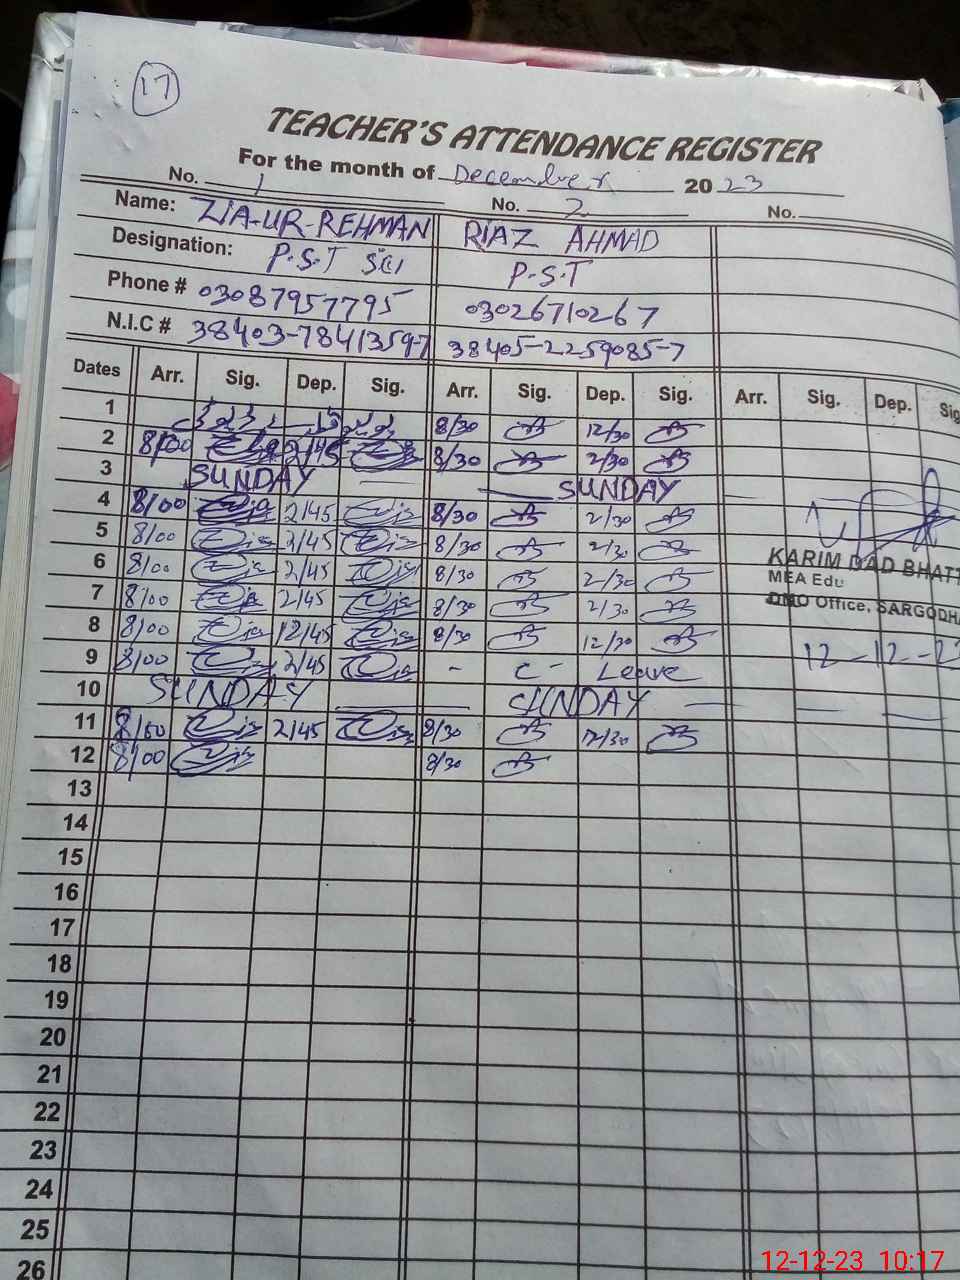 17
TEACHER'S ATTENDANCE REGISTER
For the month of December 2023
No. 1 No. 2 No.
Name: ZIA-UR-REHMAN RIAZ AHMAD
Designation: P.S.T P.S.T
Phone # 03087957795 03026710267
N.I.C # 38403-7841359-7 38405-2259085-7
Dates Arr. Sig. Dep. Sig. Arr. Sig. Dep. Sig. Arr. Sig. Dep. Sig
1 8/30 12/30
2 8/00 2/45 8/30 2/30
3 SUNDAY SUNDAY
4 8/00 2/45 8/30 2/30
5 8/00 2/45 8/30 2/30
6 8/00 2/45 8/30 2/30
7 8/00 2/45 8/30 2/30
8 8/00 12/45 8/30 12/30
9 8/00 2/45 - C- Leave
10 SUNDAY SUNDAY
11 8/00 2/45 8/30 2/30
12 8/00 8/30
13
14
15
16
17
18
19
20
21
22
23
24
25
26
KARIM DAD BHATT
MEA Edu
DMO Office, SARGODHA
12-12-2
12-12-23 10:17